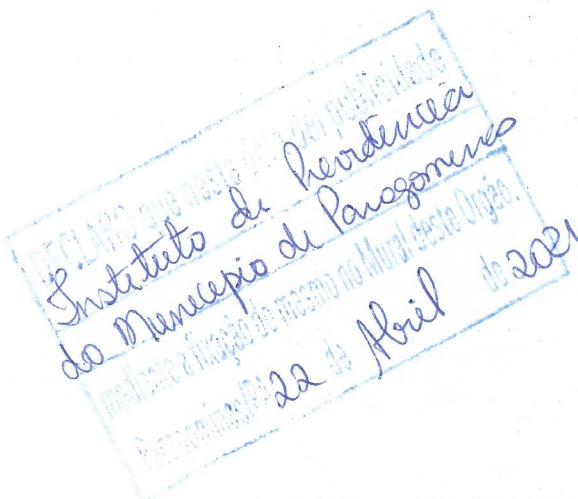 DECLARO que nesta data dei publicidade
Instituto de Previdência
do Municipio de Paragominas
mediante a fixação do mesmo no Mural deste Orgão.
Paragominas/PA 22 de Abril de 2021